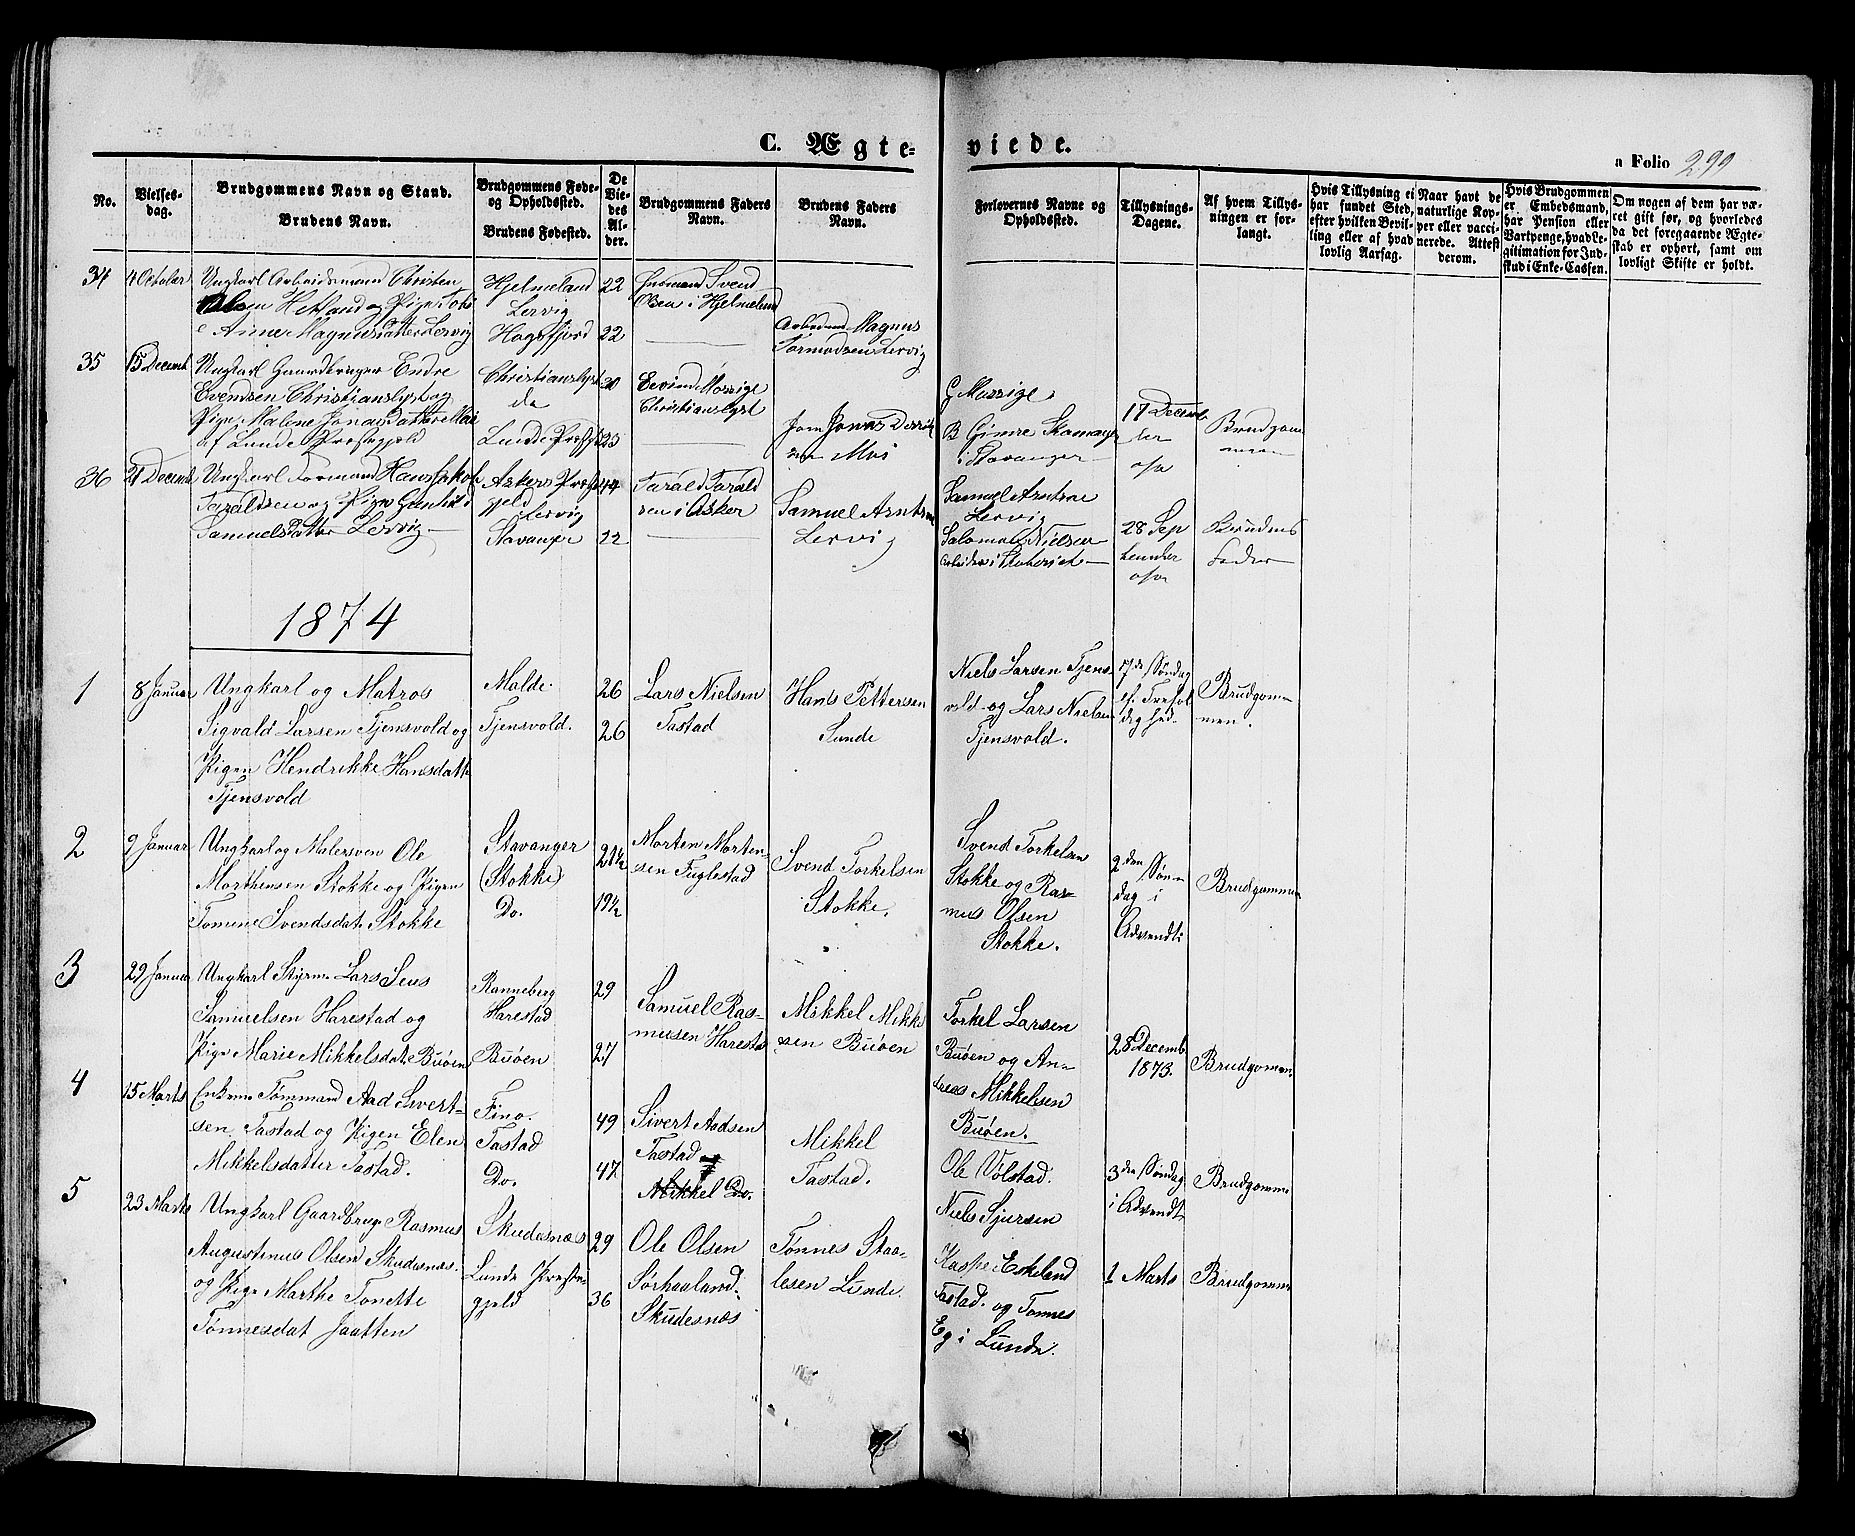 C. Ægte-
viede.
a Folio 299
No.
Vielses-
dag.
Brudgommens Navn og Stand.
Brudens Navn.
Brudgommens Føde-
og Opholdssted.
Brudens Fødested.
De
Vie-
des
Al-
der.
Brudgommens Faders
Navn.
Brudens Faders
Navn.
Forlovernes Navne og
Opholdssted.
Tillysnings-
Dagene.
Af hvem Tillys-
ningen er for-
langt.
Hvis Tillysning ei
har fundet Sted,
efter hvilken Bevil-
ling eller af hvad
lovlig Aarsag.
Naar havt de
naturlige Kop-
per eller vacci-
nerede. Attest
derom.
Hvis Brudgommen
er Embedsmand,
har Pension eller
Vartpenge, hvad Le-
gitimation for Ind-
skud i Enke-Cassen.
Om nogen af dem har væ-
ret gift før, og hvorledes
da det foregaaende Ægte-
skab er ophørt, samt om
lovligt Skifte er holdt.
34
4 October
Ungkarl Arbeidsmann Christen
Olsen Hetland og Pige Tobi
e Anne Magnusdatter Lervig
Hjelmeland
Lervig
Høgsfjord
22
22
Husmand Svend
Olsen i Hjelmeland
Arbeidsmd Magnus
Tormodsen Lervig
35
15 Decemb
Ungkarl Gaardbruger Endre
Evendsen Christianslyst og
Pige Malene Jonasdatter Moi
af Lunde Præstegjeld
Christianslyst
do
Lunde Præstgj
30
23
Eevind Mossige
Christianslyst
Jonas
Moi
G Mossige
B Gimre
i Stavanger
17 Decemb
ber
ofv
Brudgom
men
36
21 Decemb
Ungkarl Formand Hans Jakob
Taraldsen og Pige Gunhild
Samuelsdatter Lervig
Askers Præste
gjeld
Lervig
Stavanger
44
22
Tarald Tarald
sen i Asker
Samuel Arntsen
Lervig
Samuel Arntsen
Lervig
Salomon Nielsen
28 Sep
tember
ofv
Brudens
Fader
1874
1
8 Januar
Ungkarl og Matros
Sigvald Larsen Tjensvold og
Pigen Hendrikke Hansdatt.
Tjensvold
Malde.
Tjensvold.
26
26
Lars Nielsen
Tastad
Hans Pettersen
Sunde
Niels Larsen Tjens-
vold og Lars Nielsen
Tjensvold.
17de Søndag
ef. Trefol
dighed.
Brudgom-
men.
2
9 Januar
Ungkarl og Malersven Ole
Morthensen Stokke og Pigen
Tomine Svendsdat. Stokke
Stavanger
(Stokke)
Do.
21½
19½
Morten Morten-
sen Fuglestad
Svend Torkelsen
Stokke.
Svend Torkelsen
Stokke og Ras-
mus Olsen
Stokke.
2den Søn-
dag i
Advendt
Brudgommen
3
29 Januar
Ungkarl Styrm. Lars Seus
Samuelsen Harestad og
Pige Marie Mikkelsdat. Buøen
Ranneberg
Harestad
Buøen
29
27
Samuel Ras-
mussen Harestad
Mikkel Mikkel
sen Buøen
Torkel Larsen
Buøen og An-
dreas Mikkelsen
Buøen.
28 Decemb
1873.
Brudgommen.
4
15 Marts
Enkem. Tømmand Aad Sivert-
sen Tastad og Pigen Elen
Mikkelsdatter Tastad.
Finø.
Tastad
Do.
49
47
Sivert Aadsen
Tastad
Mikkel Do.
Mikkel
Tastad.
Ole Volstad.
Niels Sjursen
3den Søndag
i Advendt
Brudgomme
5
23 Marts
Ungkarl Gaardbruger Rasmus
Augustinus Olsen Skudesnæs.
og Pige Marthe Tonette
Tønnesdat Jaatten
Skudesnæs
Lunde Præste-
gjeld
29
36
Ole Olsen
Sørhaaland.
Skudesnæs
Tønnes Staa-
lesen Lunde.
Kaspe Eskeland
Tastad. og Tønnes
Eg i Lunde.
1 Marts
Brudgomme